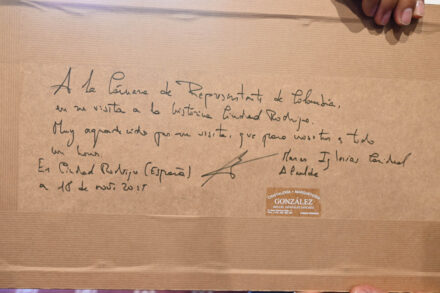 A la Cámara de Representantes de Colombia,
en su visita a la histórica Ciudad Rodrigo.
Muy agradecido por su visita, que para nosotros es todo
un honor.
En Ciudad Rodrigo (España)
a 18 de nov. 2015
Marcos Iglesias Caridad
Alcalde
GONZÁLEZ